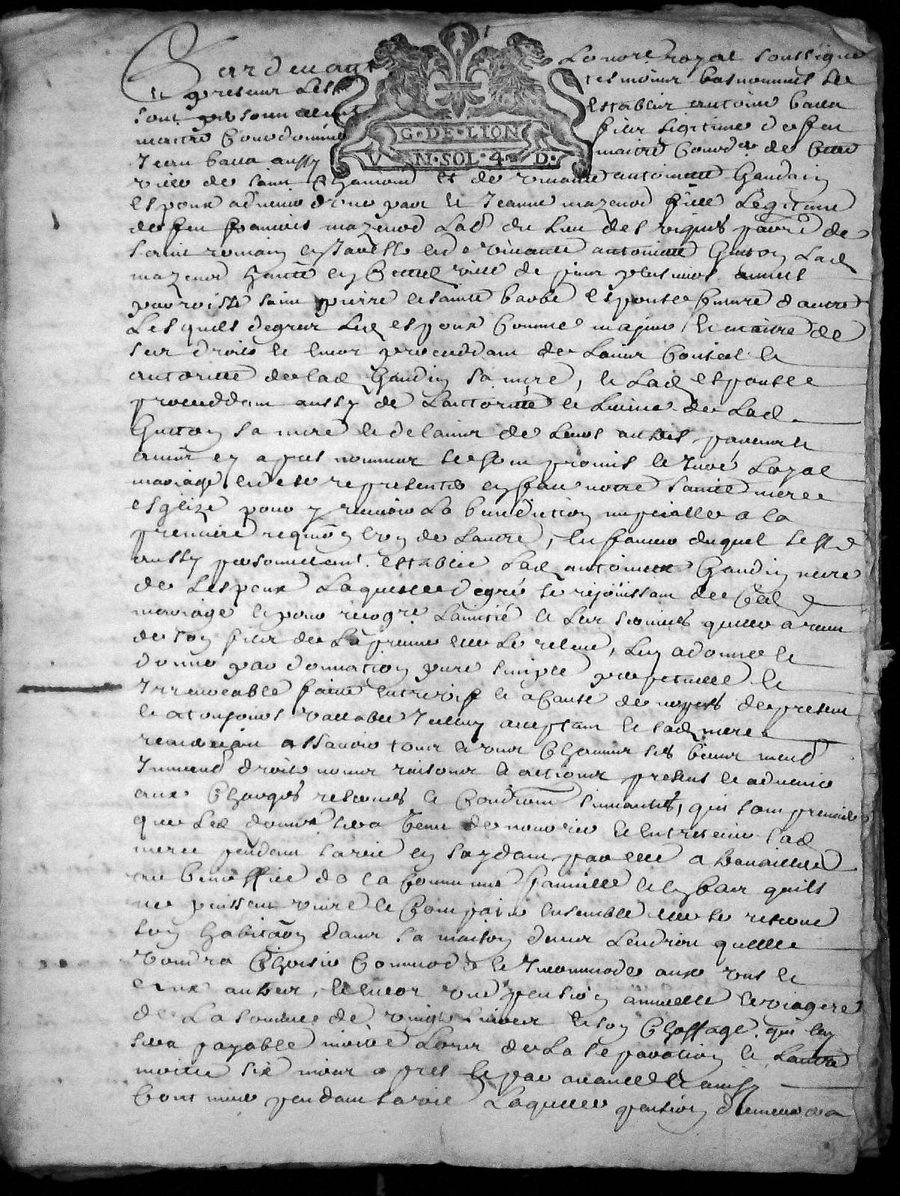 Pardevant Le no.re royal soussigné
et presens Les tesmoins bas nommés se
sont personnellement establis antoine baua
maitre Courdonnier filz Legitime de feu
Jean baua aussy maitre Courd.er de cette
G·DE·LION
V N·SOL·4·D·
ville de saint Chamond et de vivante antoinette Gaudin
espoux advenir d'une part et Jeanne mazenod fille Legitime
de feu francois mazenod Lab.r du Lieu des vignes par.sse de
saint romain en Jarestz et de vivante antoinette Guitton Lad.
mazenod habitante en cette ville de puis plusieurs années
parroisse saint pierre et sainte barbe espouse future d'autre
Lesquels de gré Led. espoux comme majeur et maitre de
ses droits et encor proceddant de L'advis Conseil et
autorité de lad. Gaudin sa mere, et Lad. espouse
proceddant aussy de L'autorité et Licence de Lad.
Guitton sa mere et de l'advis de Leurs autres parens et
amis cy apres nommés se sont promis et Juré Loyal
mariage et de se representer en face notre sainte mere
esglize pour y recevoir La benediction nuptialle a la
premiere requis.on L'un de L'autre, en faveur duquel s'est
aussy personnellement establie Lad. antoinette Gaudin mere
de L'espoux Laquelle de gré se rejouissant dud.
mariage et pour recogn.e L'amitié et Les services quelle a receu
de son fils de La presence elle Le releve, Luy a donné et
donne par donnation pure simple perpetuelle et
Irrevocable faite entre vifs et a cause de nopces de present
et a toujours vallable Iceluy acceptant et lad. mere
remerciant assavoir tous et uns Chacuns ses biens meub.
Immeub. droits noms raisons et actions presens et advenir
aux Charges reserves et Conditions suivantes, qui sont premiere
que Led. donataire sera tenu de nourrir et entretenir Lad.
mere pendant sa vie en saydant par elle a travailler
au beneffice de la Commune famille et en cas quils
ne puissent vivre et Compatir Ensemble elle se reserve
son habita.on dans sa maison dans L'endroit quelle
voudra Choisir Commode et Incommode aux uns et
aux autres, et encor une pension annuelle et viagere
de La somme de vingt Livres et son Choffage qui luy
sera payable moitié Lors de La separation et L'autre
moitié six mois apres et par avance et ainsy
Continuer pendant sa vie Laquelle pension demeurera